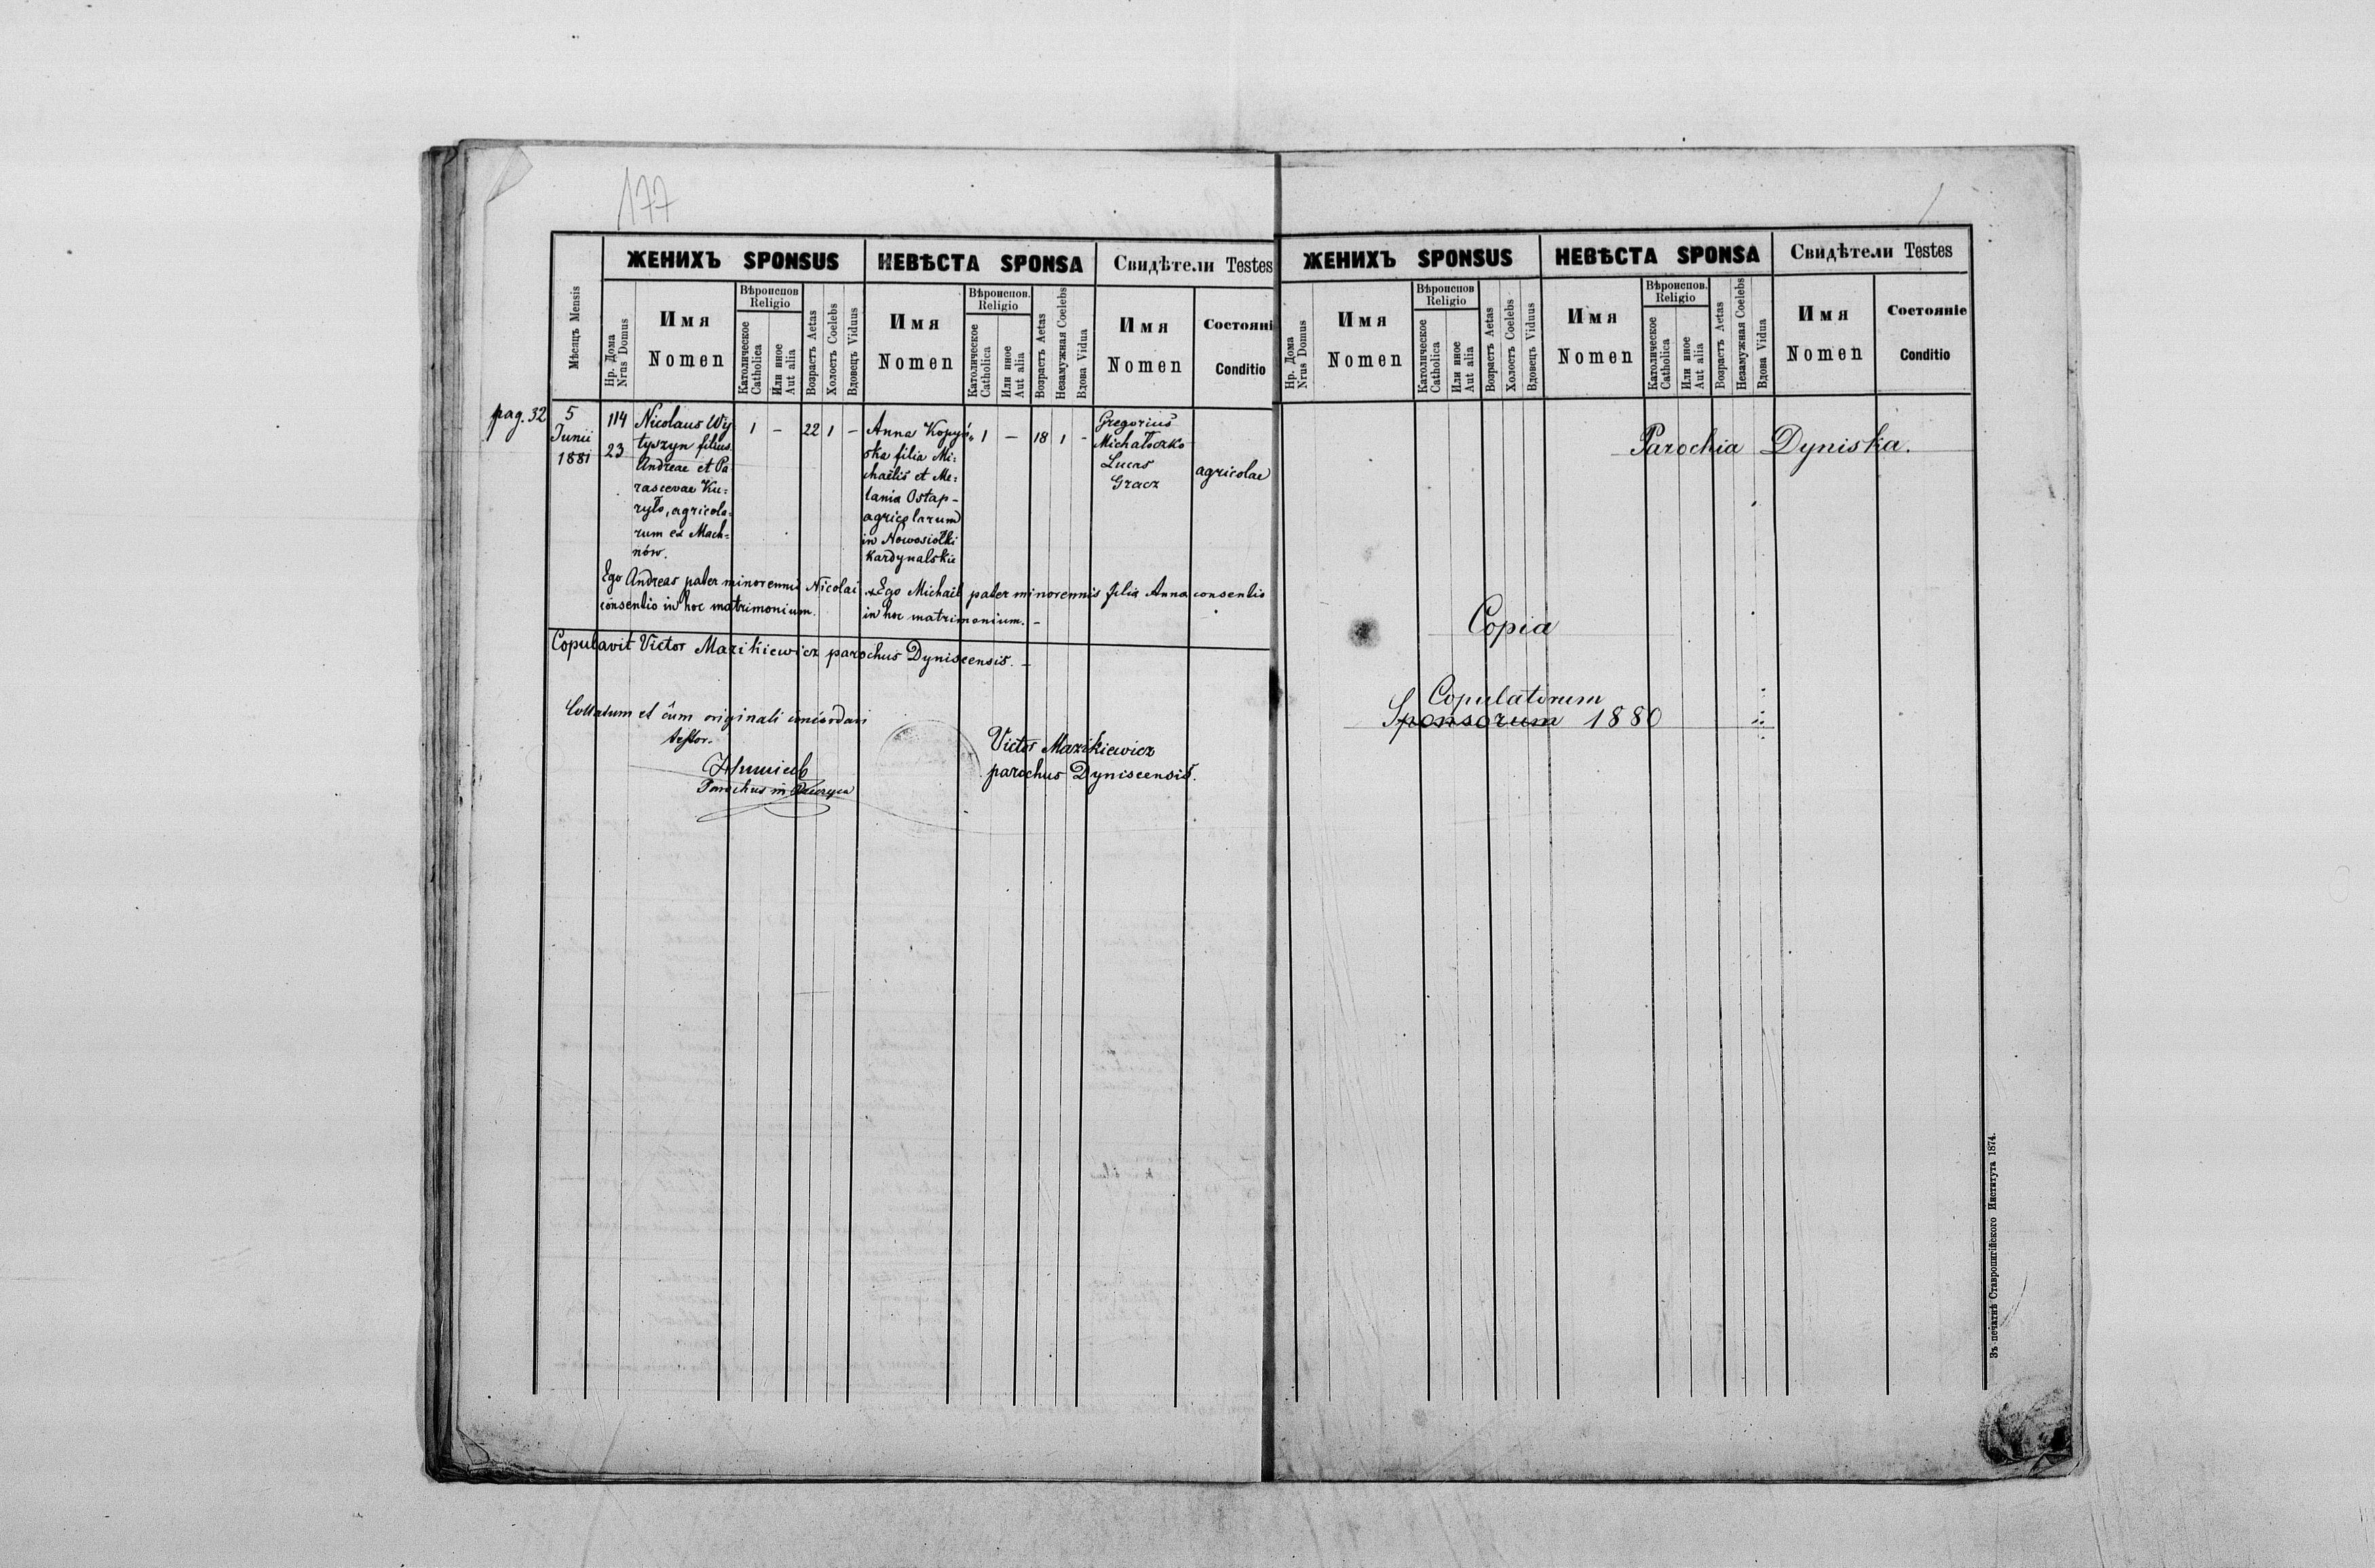 177
ЖЕНИХЪ SPONSUS
НЕВѢСТА SPONSA
Свидѣтели Testes
Мѣсяцъ Mensis
Нр. Дома
Nrus Domus
Имя
Nomen
Вѣроиспов
Religio
Католическое
Catholica
Или иное
Aut alia
Возрастъ Aetas
Холостъ Coelebs
Вдовецъ Viduus
Имя
Nomen
Вѣроиспов.
Religio
Католическое
Catholica
Или иное
Aut alia
Возрастъ Aetas
Незамужная Coelebs
Вдова Vidua
Имя
Nomen
Состояні
Conditio
pag. 32
5
Junii
1881
114
23
Nicolaus Wy
tyszyn filius
Andreae et Pa
rascevae Ku=
ryło, agricola=
rum ex Mach=
nów.
1 – 22 1 –
Anna Kopyś=
ska filia Mi=
chaëlis et Me=
lania Ostap –
agricolarum
in Nowosiołki
Kardynalskie
1 – 18 1 -
Gregorius
Michałoczko
Lucas
Gracz
agricolae
Ego Andreas pater minorennis Nicolai
consentio in hoc matrimonium.
Ego Michaël pater minorennis filia Anna consentio
in hoc matrimonium. –
Copulavit Victor Mazikiewicz parochus Dyniscensis. –
Collatum et cum originali concordari
testor.
Parochus in
Victor Mazikiewicz
parochus Dyniscensis.
ЖЕНИХЪ SPONSUS
НЕВѢСТА SPONSA
Свидѣтели Testes
Нр. Дома
Nrus Domus
Имя
Nomen
Вѣроиспов
Religio
Католическое
Catholica
Или иное
Aut alia
Возрастъ Aetas
Холостъ Coelebs
Вдовецъ Viduus
Имя
Nomen
Вѣроиспов.
Religio
Католическое
Catholica
Или иное
Aut alia
Возрастъ Aetas
Незамужная Coelebs
Вдова Vidua
Имя
Nomen
Состояніе
Conditio
Parochia Dyniska.
Copia
Copulatorum
Sponsorum 1880
Зъ печатнѣ Ставропигійского Института 1874.